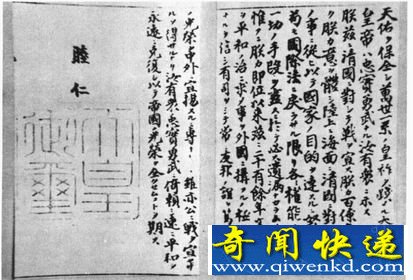 天佑ヲ保全シ萬世一系ノ皇祚ヲ踐メル大
皇帝ハ忠實勇武ナル汝有衆ニ示ス
朕茲ニ清國ニ對シテ戰ヲ宣ス朕カ百僚
朕カ意ヲ體シ陸上ニ海面ニ清國ニ對
ノ事ニ從ヒ以テ國家ノ目的ヲ達スルニ努
苟モ國際法ニ戾ラサル限リ各權能
一切ノ手段ヲ盡スニ於テ必ス遺漏ナカラ
惟フニ朕カ即位以來茲ニ二十有餘年
ヲ平和ノ治ニ求メ事ヲ外國ニ構フルノ極
ヲ信シ有司ヲシテ常ニ友邦ノ誼ヲ篤
ノ光榮ヲ中外ニ宣揚スルニ專ナリト雖亦公ニ戰ヲ宣セサ
ルヲ得サルナリ汝有衆ノ忠實勇武ニ倚賴シ速ニ平和ヲ
永遠ニ克復シ以テ帝國ノ光榮ヲ全クセムコトヲ期ス
睦仁
天皇
御璽
奇闻快递
www.qiwenkd.com